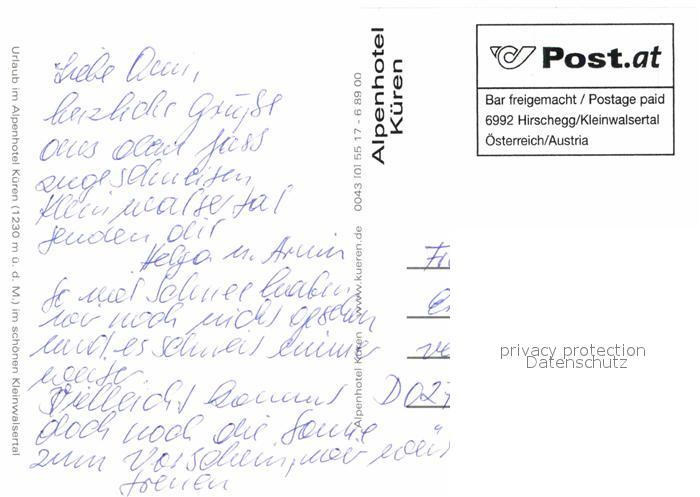 Liebe Omi,
herzliche Grüße
aus dem fast
zugeschneiten
Kleinwalsertal
senden dir
Helga u. Armin
So viel Schnee haben
wir noch nicht gesehen
und es schneit immer
weiter
Vielleicht kommt
doch noch die Sonne
zum Vorschein, wir
freuen
Urlaub im Alpenhotel Küren (1230 m ü. d. M.) im schönen Kleinwalsertal
Alpenhotel Küren www.kueren.de 0043 (0) 55 17 - 6 89 00
Alpenhotel
Küren
Post.at
Bar freigemacht / Postage paid
6992 Hirschegg/Kleinwalsertal
Österreich/Austria
privacy protection
Datenschutz